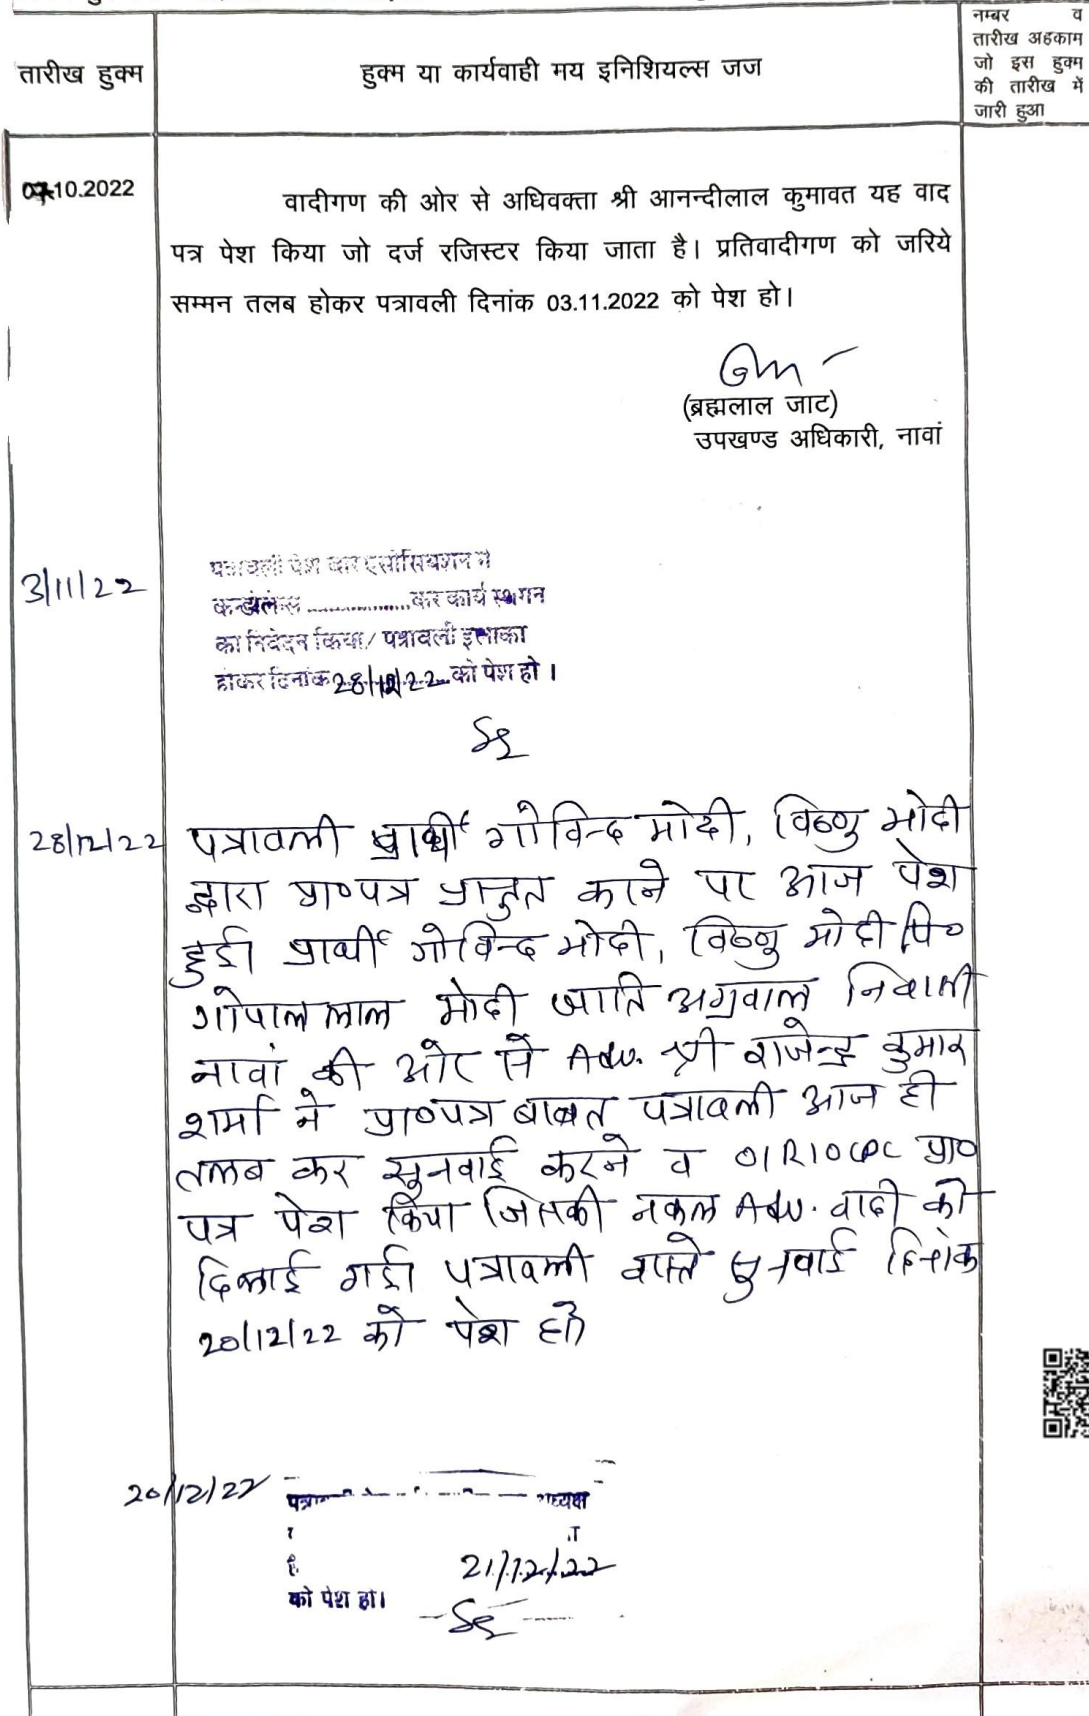 तारीख हुक्म
हुक्म या कार्यवाही मय इनिशियल्स जज
नम्बर व
तारीख अहकाम
जो इस हुक्म
की तारीख में
जारी हुआ
07.10.2022
वादीगण की ओर से अधिवक्ता श्री आनन्दीलाल कुमावत यह वाद
पत्र पेश किया जो दर्ज रजिस्टर किया जाता है। प्रतिवादीगण को जरिये
सम्मन तलब होकर पत्रावली दिनांक 03.11.2022 को पेश हो।
(ब्रह्मलाल जाट)
उपखण्ड अधिकारी, नावां
3/11/22
पत्रावली पेश बार एसोसियशन ने
कन्डोलेन्स ................. कर कार्य स्थगन
का निवेदन किया/ पत्रावली इलाका
होकर दिनांक 28/12/22 को पेश हो ।
28/12/22
पत्रावली प्रार्थी गोविन्द मोदी, विष्णु मोदी
द्वारा प्रा०पत्र प्रस्तुत करने पर आज पेश
हुई। प्रार्थी गोविन्द मोदी, विष्णु मोदी पि०
गोपाल लाल मोदी जाति अग्रवाल निवासी
नावां की ओर से Adv. श्री राजेन्द्र कुमार
शर्मा ने प्रा०पत्र बाबत पत्रावली आज ही
तलब कर सुनवाई करने व O1R10CPC प्रा०
पत्र पेश किया जिसकी नकल Adv. वादी को
दिलाई गई। पत्रावली वास्ते सुनवाई दिनांक
20/12/22 को पेश हो
20/12/22
21/12/22
को पेश हो।